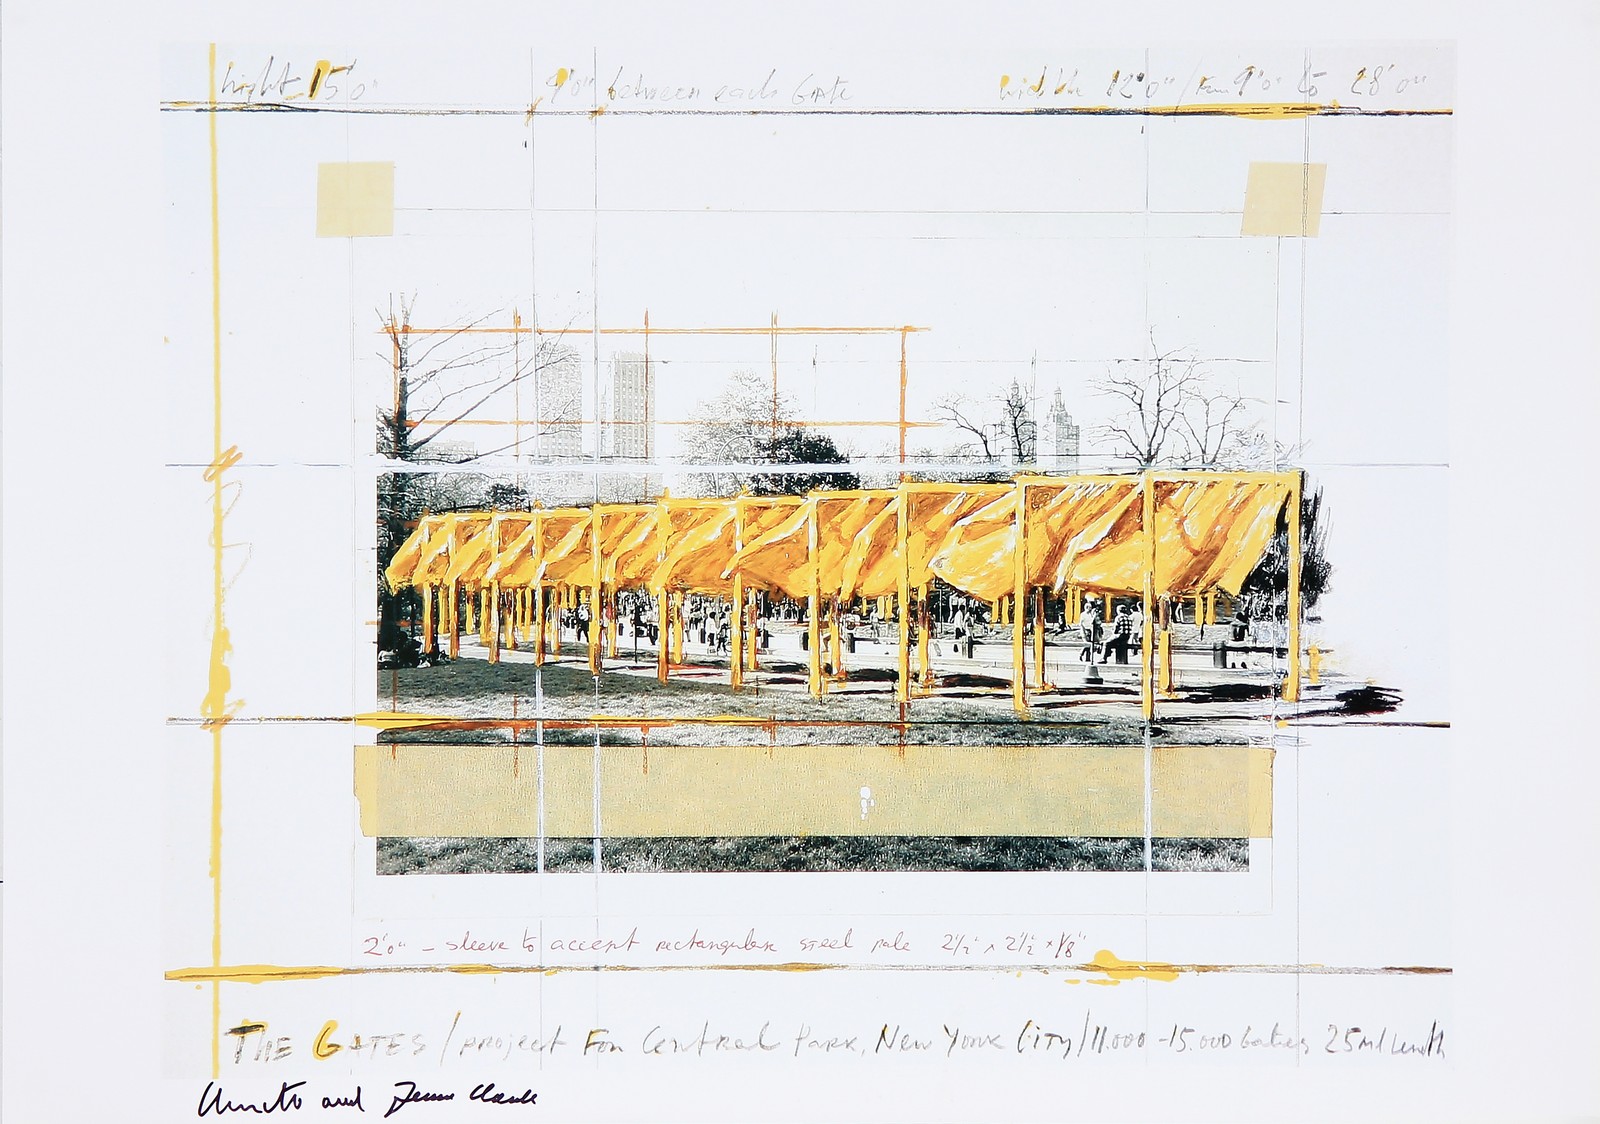 hight 15'0" 9'0" between each Gate width 12'0" / From 9'0" to 28'0"
2'0" - sleeve to accept rectangular steel pole 2 1/2" x 2 1/2" x 1/8"
THE GATES / project For Central Park, New York City / 11.000 - 15.000 Gates, 25 ml Lenth
Christo and Jeanne Claude